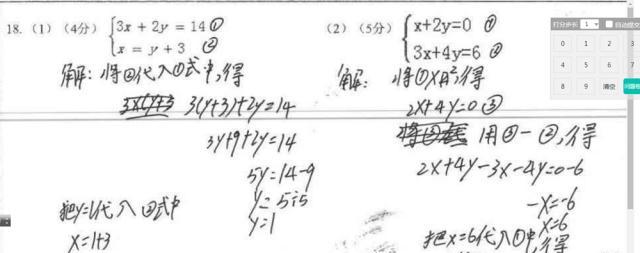 18.（1）（4分） {3x + 2y = 14 ①
x = y + 3 ②
解：将②代入①式中,得
3(y+3)+2y=14
3y+9+2y=14
5y=14-9
y=5÷5
y=1
把y=1代入②式中
x=1+3
（2）（5分） {x+2y=0 ①
3x+4y=6 ②
解：将①×2,得
2x+4y=0 ③
用③-②,得
2x+4y-3x-4y=0-6
-x=-6
x=6
把x=6代入①中,得
打分步长 1 自动提交
0 1 2 3
4 5 6 7
8 9 清空